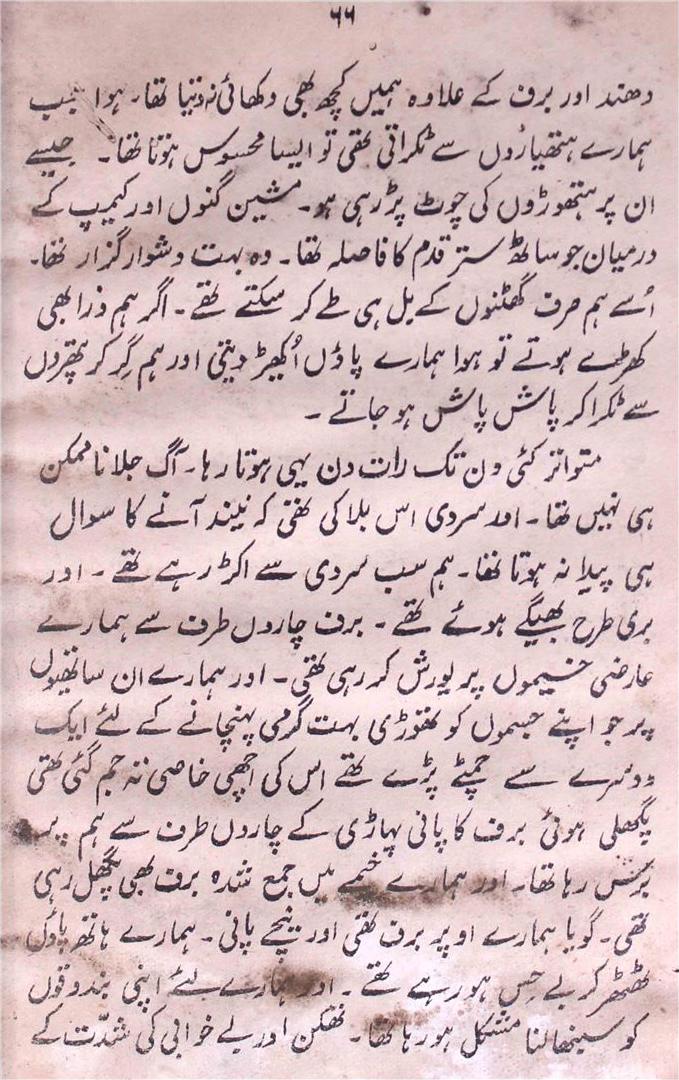 ۶۶
دھند اور برف کے علاوہ ہمیں کچھ بھی دکھائی نہ دیتا تھا۔ ہوا جب
ہمارے ہتھیاروں سے ٹکراتی تھی تو ایسا محسوس ہوتا تھا۔ جیسے
ان پر ہتھوڑوں کی چوٹ پڑ رہی ہو۔ مشین گنوں اور کیمپ کے
درمیان جو ساٹھ ستر قدم کا فاصلہ تھا۔ وہ بہت دشوار گزار تھا۔
اُسے ہم صرف گھٹنوں کے بل ہی طے کر سکتے تھے۔ اگر ہم ذرا بھی
کھڑے ہوتے تو ہوا ہمارے پاؤں اُکھیڑ دیتی اور ہم گِر کر پتھروں
سے ٹکرا کر پاش پاش ہو جاتے ۔
متواتر کئی دن تک رات دن یہی ہوتا رہا۔ آگ جلانا ممکن
ہی نہیں تھا۔ اور سردی اس بلا کی تھی کہ نیند آنے کا سوال
ہی پیدا نہ ہوتا تھا۔ ہم سب سردی سے اکڑ رہے تھے ۔ اور
بری طرح بھیگے ہوئے تھے ۔ برف چاروں طرف سے ہمارے
عارضی خیموں پر یورش کر رہی تھی۔ اور ہمارے ان ساتھیوں
پر جو اپنے جسموں کو تھوڑی بہت گرمی پہنچانے کے لئے ایک
دوسرے سے چمٹے پڑے تھے اس کی اچھی خاصی تہ جم گئی تھی
پگھلی ہوئی برف کا پانی پہاڑی کے چاروں طرف سے ہم پر
برس رہا تھا۔ اور ہمارے خیمے میں جمع شدہ برف بھی پگھل رہی
تھی۔ گویا ہمارے اوپر برف تھی اور نیچے پانی۔ ہمارے ہاتھ پاؤں
ٹھٹھر کر بے حِس ہو رہے تھے ۔ اور ہمارے لئے اپنی بندوقوں
کو سنبھالنا مشکل ہو رہا تھا۔ تھکن اور بے خوابی کی شدّت کے